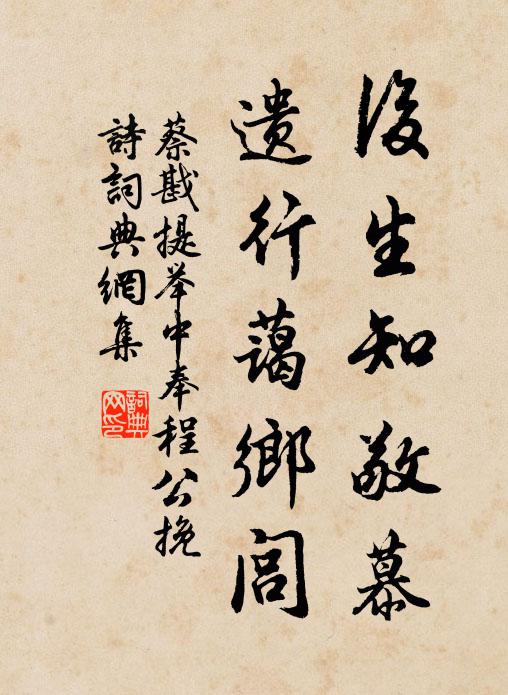 後生知敬慕
遗行藹鄉閭
蔡戡提举中奉程公挽
詩詞典網集
詞典
网印